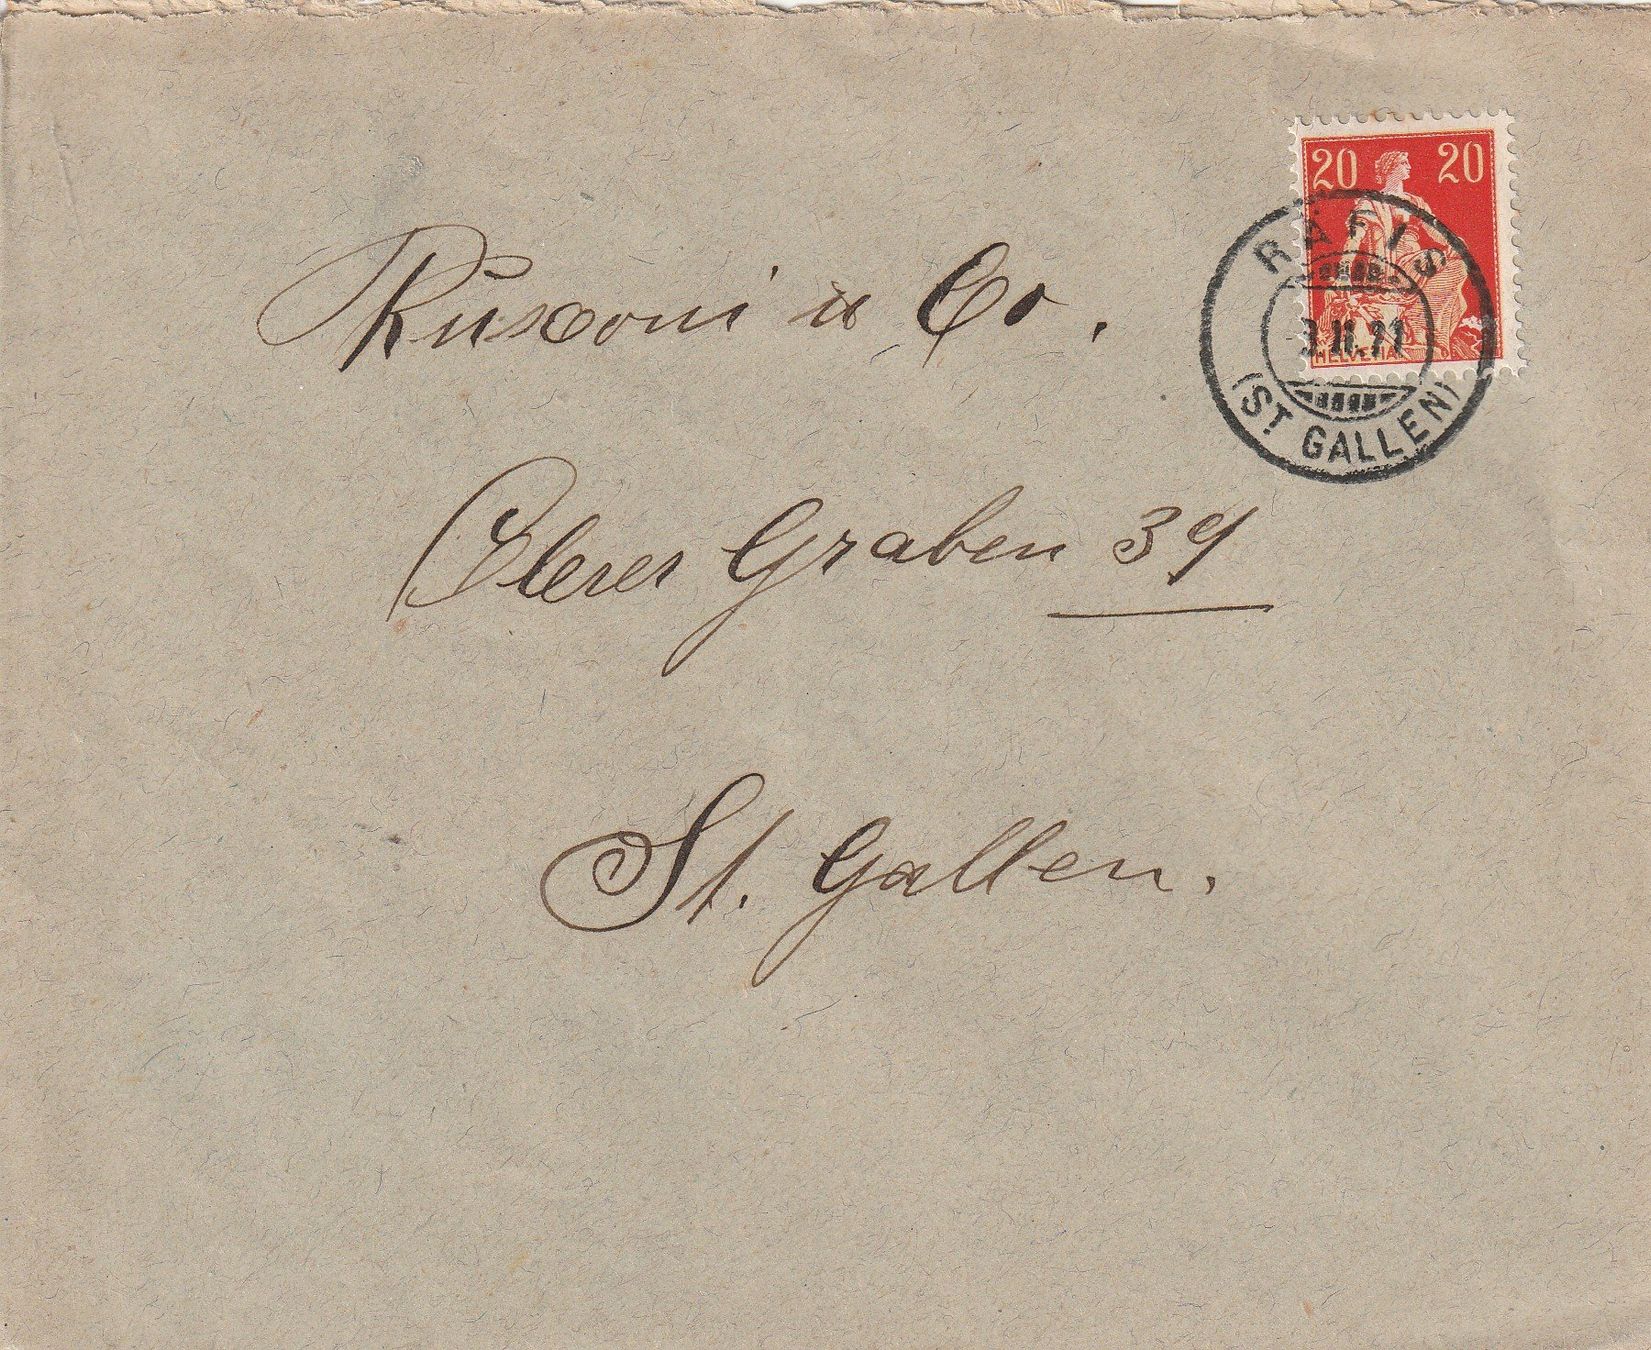 20 20
HELVETIA
RÄFIS
3.II.21
(ST GALLEN)
Rusconi u Co.
Oberer Graben 39
St. Gallen.